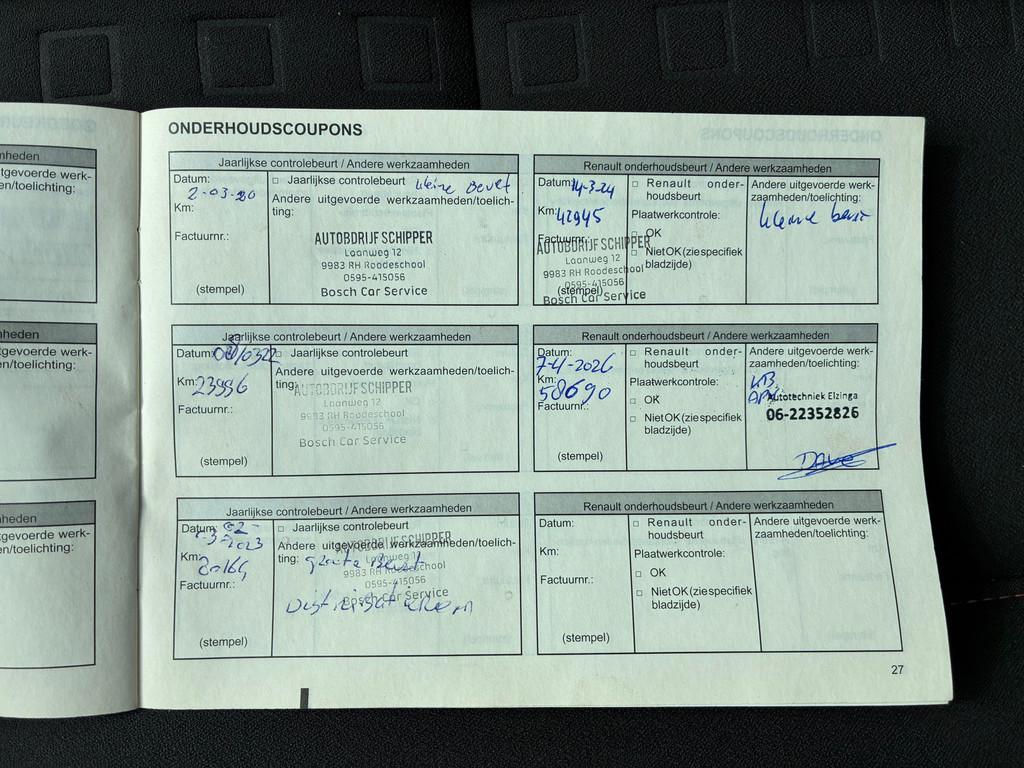 ONDERHOUDSCOUPONS
heden
tgevoerde werk-
en/toelichting:
heden
tgevoerde werk-
en/toelichting:
heden
tgevoerde werk-
en/toelichting:
Jaarlijkse controlebeurt / Andere werkzaamheden
Datum:
2-03-20
Km:
Factuurnr.:
(stempel)
Jaarlijkse controlebeurt kleine Beurt
Andere uitgevoerde werkzaamheden/toelich-
ting:
AUTOBDRIJF SCHIPPER
Laanweg 12
9983 RH Roodeschool
0595-415056
Bosch Car Service
Renault onderhoudsbeurt / Andere werkzaamheden
Datum: 14-3-24
Km: 42945
Factuurnr.:
(stempel)
Renault onder-
houdsbeurt
Plaatwerkcontrole:
OK
Niet OK (zie specifiek
bladzijde)
AUTOBDRIJF SCHIPPER
Laanweg 12
9983 RH Roodeschool
0595-415056
Bosch Car Service
Andere uitgevoerde werk-
zaamheden/toelichting:
kleine beurt
Jaarlijkse controlebeurt / Andere werkzaamheden
Datum:
Km: 23996
Factuurnr.:
(stempel)
Jaarlijkse controlebeurt
Andere uitgevoerde werkzaamheden/toelich-
ting:
AUTOBDRIJF SCHIPPER
Laanweg 12
9983 RH Roodeschool
0595-415056
Bosch Car Service
Renault onderhoudsbeurt / Andere werkzaamheden
Datum:
7-4-2026
Km:
58690
Factuurnr.:
(stempel)
Renault onder-
houdsbeurt
Plaatwerkcontrole:
OK
Niet OK (zie specifiek
bladzijde)
Andere uitgevoerde werk-
zaamheden/toelichting:
Autotechniek Elzinga
06-22352826
DAVE
Jaarlijkse controlebeurt / Andere werkzaamheden
Datum:
2023
Km:
Factuurnr.:
(stempel)
Jaarlijkse controlebeurt
Andere uitgevoerde werkzaamheden/toelich-
ting: grote Beurt
AUTOBDRIJF SCHIPPER
Laanweg 12
9983 RH Roodeschool
0595-415056
Bosch Car Service
Renault onderhoudsbeurt / Andere werkzaamheden
Datum:
Km:
Factuurnr.:
(stempel)
Renault onder-
houdsbeurt
Plaatwerkcontrole:
OK
Niet OK (zie specifiek
bladzijde)
Andere uitgevoerde werk-
zaamheden/toelichting:
27